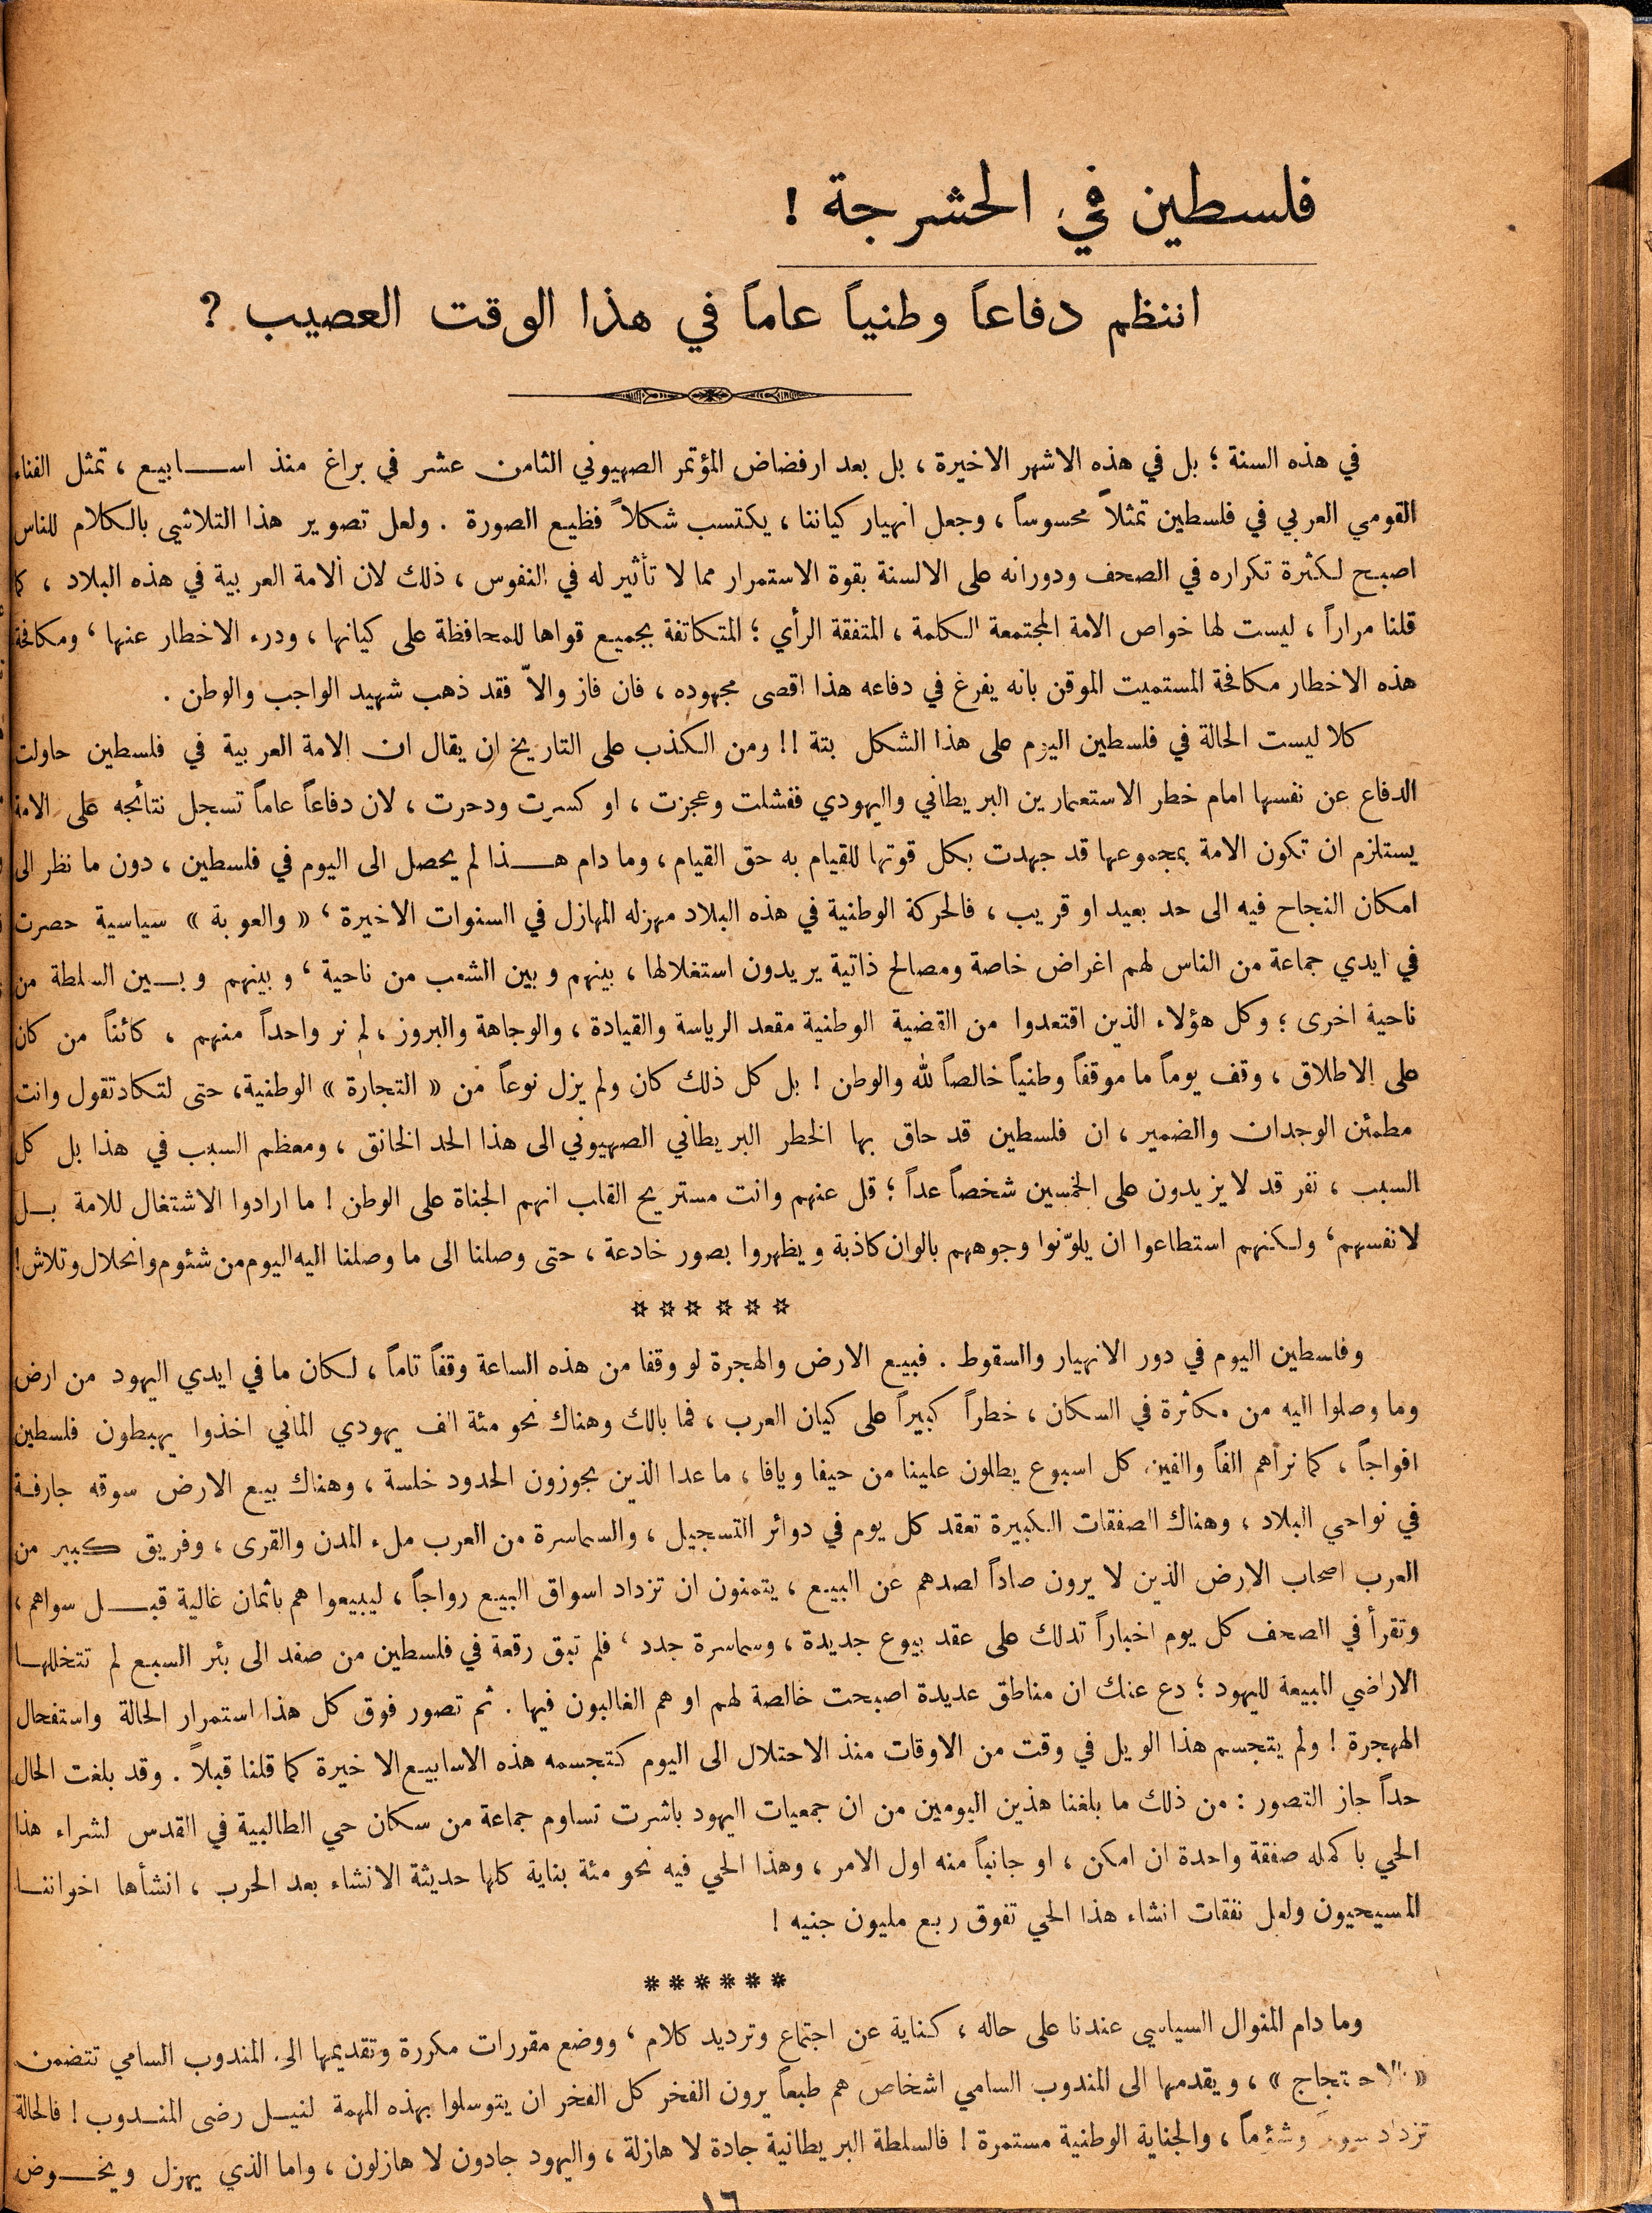 فلسطين في الحشرجة !
اننظم دفاعاً وطنياً عاماً في هذا الوقت العصيب ؟
في هذه السنة ؛ بل في هذه الاشهر الاخيرة ، بل بعد ارفضاض المؤتمر الصهيوني الثامن عشر في براغ منذ اسابيع ، تمثل الفناء
القومي العربي في فلسطين تمثلاً محسوساً ، وجعل انهيار كياننا ، يكتسب شكلاً فظيع الصورة . ولعل تصوير هذا التلاشي بالكلام للناس
اصبح لكثرة تكراره في الصحف ودورانه على الالسنة بقوة الاستمرار مما لا تأثير له في النفوس ، ذلك لان الامة العربية في هذه البلاد ، كما
قلنا مراراً ، ليست لها خواص الامة المجتمعة الكلمة ، المتفقة الرأي ؛ المتكاتفة بجميع قواها للمحافظة على كيانها ، ودرء الاخطار عنها ، ومكافحة
هذه الاخطار مكافحة المستميت الموقن بانه يفرغ في دفاعه هذا اقصى مجهوده ، فان فاز والاّ فقد ذهب شهيد الواجب والوطن .
كلا ليست الحالة في فلسطين اليوم على هذا الشكل بتة !! ومن الكذب على التاريخ ان يقال ان الامة العربية في فلسطين حاولت
الدفاع عن نفسها امام خطر الاستعمارين البريطاني واليهودي ففشلت وعجزت ، او كسرت ودحرت ، لان دفاعاً عاماً تسجل نتائجه على الامة
يستلزم ان تكون الامة بمجموعها قد جهدت بكل قوتها للقيام به حق القيام ، وما دام هذا لم يحصل الى اليوم في فلسطين ، دون ما نظر الى
امكان النجاح فيه الى حد بعيد او قريب ، فالحركة الوطنية في هذه البلاد مهزله المهازل في السنوات الاخيرة ، « والعوبة » سياسية حصرت
في ايدي جماعة من الناس لهم اغراض خاصة ومصالح ذاتية يريدون استغلالها ، بينهم وبين الشعب من ناحية ، وبينهم وبين السلطة من
ناحية اخرى ؛ وكل هؤلاء الذين اقتعدوا من القضية الوطنية مقعد الرياسة والقيادة ، والوجاهة والبروز ، لم نر واحداً منهم ، كائناً من كان
على الاطلاق ، وقف يوماً ما موقفاً وطنياً خالصاً لله والوطن ! بل كل ذلك كان ولم يزل نوعاً من « التجارة » الوطنية، حتى لتكاد تقول وانت
مطمئن الوجدان والضمير ، ان فلسطين قد حاق بها الخطر البريطاني الصهيوني الى هذا الحد الخانق ، ومعظم السبب في هذا بل كل
السبب ، نفر قد لا يزيدون على الخمسين شخصاً عداً ؛ قل عنهم وانت مستريح القلب انهم الجناة على الوطن ! ما ارادوا الاشتغال للامة بل
لانفسهم، ولكنهم استطاعوا ان يلوّنوا وجوههم بالوان كاذبة ويظهروا بصور خادعة ، حتى وصلنا الى ما وصلنا اليه اليوم من شئوم وانحلال وتلاش!
******
وفلسطين اليوم في دور الانهيار والسقوط . فبيع الارض والهجرة لو وقفا من هذه الساعة وقفاً تاماً ، لكان ما في ايدي اليهود من ارض
وما وصلوا اليه من مكاثرة في السكان ، خطراً كبيراً على كيان العرب ، فما بالك وهناك نحو مئة الف يهودي الماني اخذوا يهبطون فلسطين
افواجاً ، كما نراهم الفاً والفين كل اسبوع يطلون علينا من حيفا ويافا ، ما عدا الذين يجوزون الحدود خلسة ، وهناك بيع الارض سوقه جارفة
في نواحي البلاد ، وهناك الصفقات الكبيرة تعقد كل يوم في دوائر التسجيل ، والسماسرة من العرب ملء المدن والقرى ، وفريق كبير من
العرب اصحاب الارض الذين لا يرون صاداً لصدهم عن البيع ، يتمنون ان تزداد اسواق البيع رواجاً ، ليبيعوا هم باثمان غالية قبل سواهم ،
وتقرأ في الصحف كل يوم اخباراً تدلك على عقد بيوع جديدة ، وسماسرة جدد ، فلم تبق رقعة في فلسطين من صفد الى بئر السبع لم تتخللها
الاراضي المبيعة لليهود ؛ دع عنك ان مناطق عديدة اصبحت خالصة لهم او هم الغالبون فيها . ثم تصور فوق كل هذا استمرار الحالة واستفحال
الهجرة ! ولم يتجسم هذا الويل في وقت من الاوقات منذ الاحتلال الى اليوم كتجسمه هذه الاسابيع الاخيرة كما قلنا قبلاً . وقد بلغت الحال
حداً جاز التصور : من ذلك ما بلغنا هذين اليومين من ان جمعيات اليهود باشرت تساوم جماعة من سكان حي الطالبية في القدس لشراء هذا
الحي باكمله صفقة واحدة ان امكن ، او جانباً منه اول الامر ، وهذا الحي فيه نحو مئة بناية كلها حديثة الانشاء بعد الحرب ، انشأها اخواننا
المسيحيون ولعل نفقات انشاء هذا الحي تفوق ربع مليون جنيه !
******
وما دام المنوال السياسي عندنا على حاله ، كناية عن اجتماع وترديد كلام ، ووضع مقررات مكررة وتقديمها الى المندوب السامي تتضمن
« الاحتجاج » ، ويقدمها الى المندوب السامي اشخاص هم طبعاً يرون الفخر كل الفخر ان يتوسلوا بهذه المهمة لنيل رضى المندوب ! فالحالة
تزداد سوءً وشئوماً ، والجناية الوطنية مستمرة ! فالسلطة البريطانية جادة لا هازلة ، واليهود جادون لا هازلون ، واما الذي يهزل ويخوض
١٦